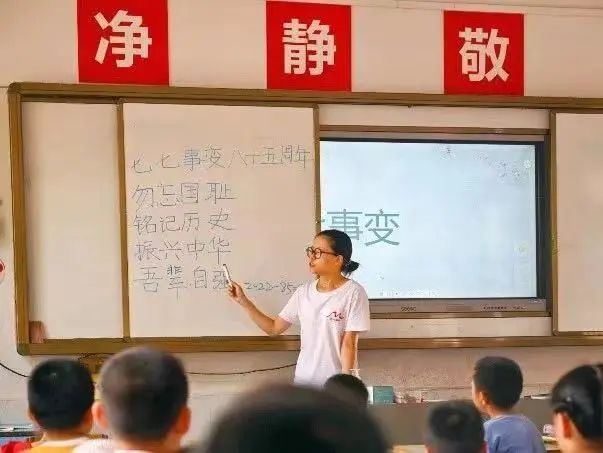 净 静 敬
七七事变八十五周年
勿忘国耻
铭记历史
振兴中华
吾辈自强
事变